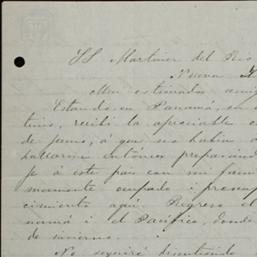 SS Martinez del Rio
Nueva
Mui estimados amig
Estando en Panamá, en
tino, recibí la apreciable
de junio, á que no habia
hallarme entónces preparand
je á este pais con mi fam
mamente ocupado i preocup
cimiento aqui. Regreso
namá i el Pacífico, donde
de invierno.
No seguiré discutiendo